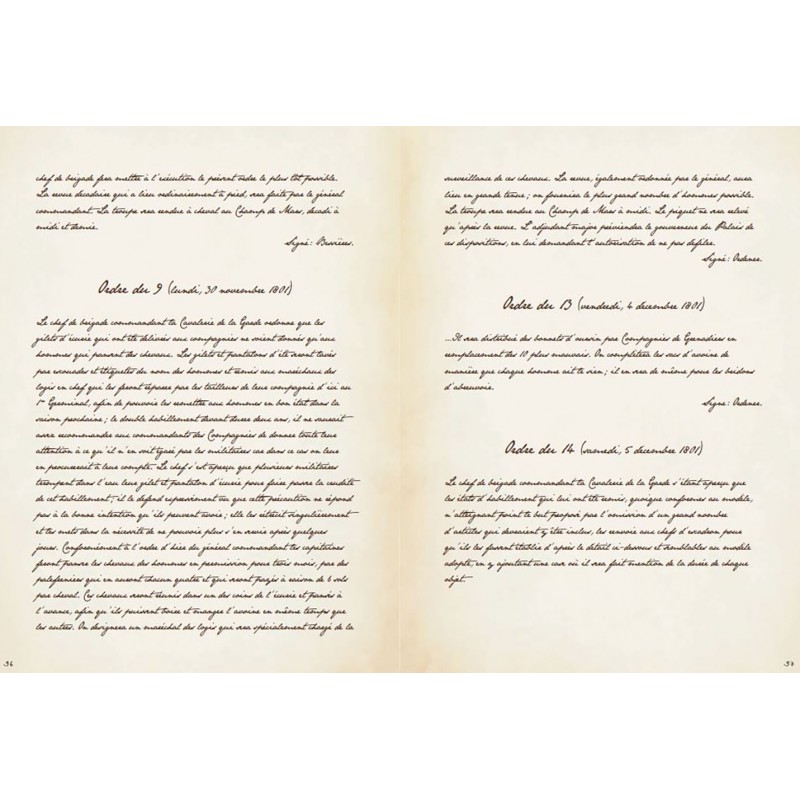 chef de brigade fera mettre à l'exécution le présent ordre le plus tôt possible.
La revue décadaire qui a lieu ordinairement à pied, sera faite par le général
commandant. La troupe sera rendue à cheval au Champ de Mars, décadi à
midi et demie.
Signé: Bessières.
Ordre du 9 (lundi, 30 novembre 1801)
Le chef de brigade commandant la Cavalerie de la Garde ordonne que les
gilets d'écurie qui ont été délivrés aux compagnies ne soient donnés qu'aux
hommes qui pansent des chevaux. Les gilets et pantalons d'été seront lavés
par escouades et étiquetés du nom des hommes et remis aux maréchaux des
logis en chef qui les feront réparer par les tailleurs de leur compagnie d'ici au
1er Germinal, afin de pouvoir les remettre aux hommes en bon état dans la
saison prochaine; le double habillement devant durer deux ans, il ne saurait
assez recommander aux commandants des Compagnies de donner toute leur
attention à ce qu'il n'en soit égaré par les militaires car dans ce cas on leur
en procurerait à leur compte. Le chef s'est aperçu que plusieurs militaires
trempent dans l'eau leur gilet et pantalon d'écurie pour faire passer la crudité
de cet habillement; il le défend expressément vu que cette précaution ne répond
pas à la bonne intention qu'ils peuvent avoir; elle les rétrécit singulièrement
et les mets dans la nécessité de ne pouvoir plus s'en servir après quelques
jours. Conformément à l'ordre d'hier du général commandant les capitaines
feront panser les chevaux des hommes en permission pour trois mois, par des
palefreniers qui en auront chacun quatre et qui seront payés à raison de 6 sols
par cheval. Ces chevaux seront réunis dans un des coins de l'écurie et pansés à
l'avance, afin qu'ils puissent boire et manger l'avoine en même temps que
les autres. On désignera un maréchal des logis qui sera spécialement chargé de la
36
surveillance de ces chevaux. La revue, également ordonnée par le général, aura
lieu en grande tenue; on fournira le plus grand nombre d'hommes possible.
La troupe sera rendue au Champ de Mars à midi. Le piquet ne sera relevé
qu'après la revue. L'adjudant major préviendra le gouverneur du Palais de
ces dispositions, en lui demandant l'autorisation de ne pas défiler.
Signé: Ordener.
Ordre du 13 (vendredi, 4 décembre 1801)
...Il sera distribué des bonnets d'oursin par Compagnies de Grenadiers en
remplacement des 10 plus mauvais. On complétera les sacs d'avoine de
manière que chaque homme ait le sien; il en sera de même pour les bridons
d'abreuvoir.
Signé: Ordener.
Ordre du 14 (samedi, 5 décembre 1801)
Le chef de brigade commandant la Cavalerie de la Garde s'étant aperçu que
les états d'habillement qui lui ont été remis, quoique conformes au modèle,
n'atteignent point le but proposé par l'omission d'un grand nombre
d'articles qui devraient y être inclus, les renvoie aux chefs d'escadron pour
qu'ils les fassent établir d'après le détail ci-dessous et semblables au modèle
adopté, en y ajoutant une case où il sera fait mention de la durée de chaque
objet.
37